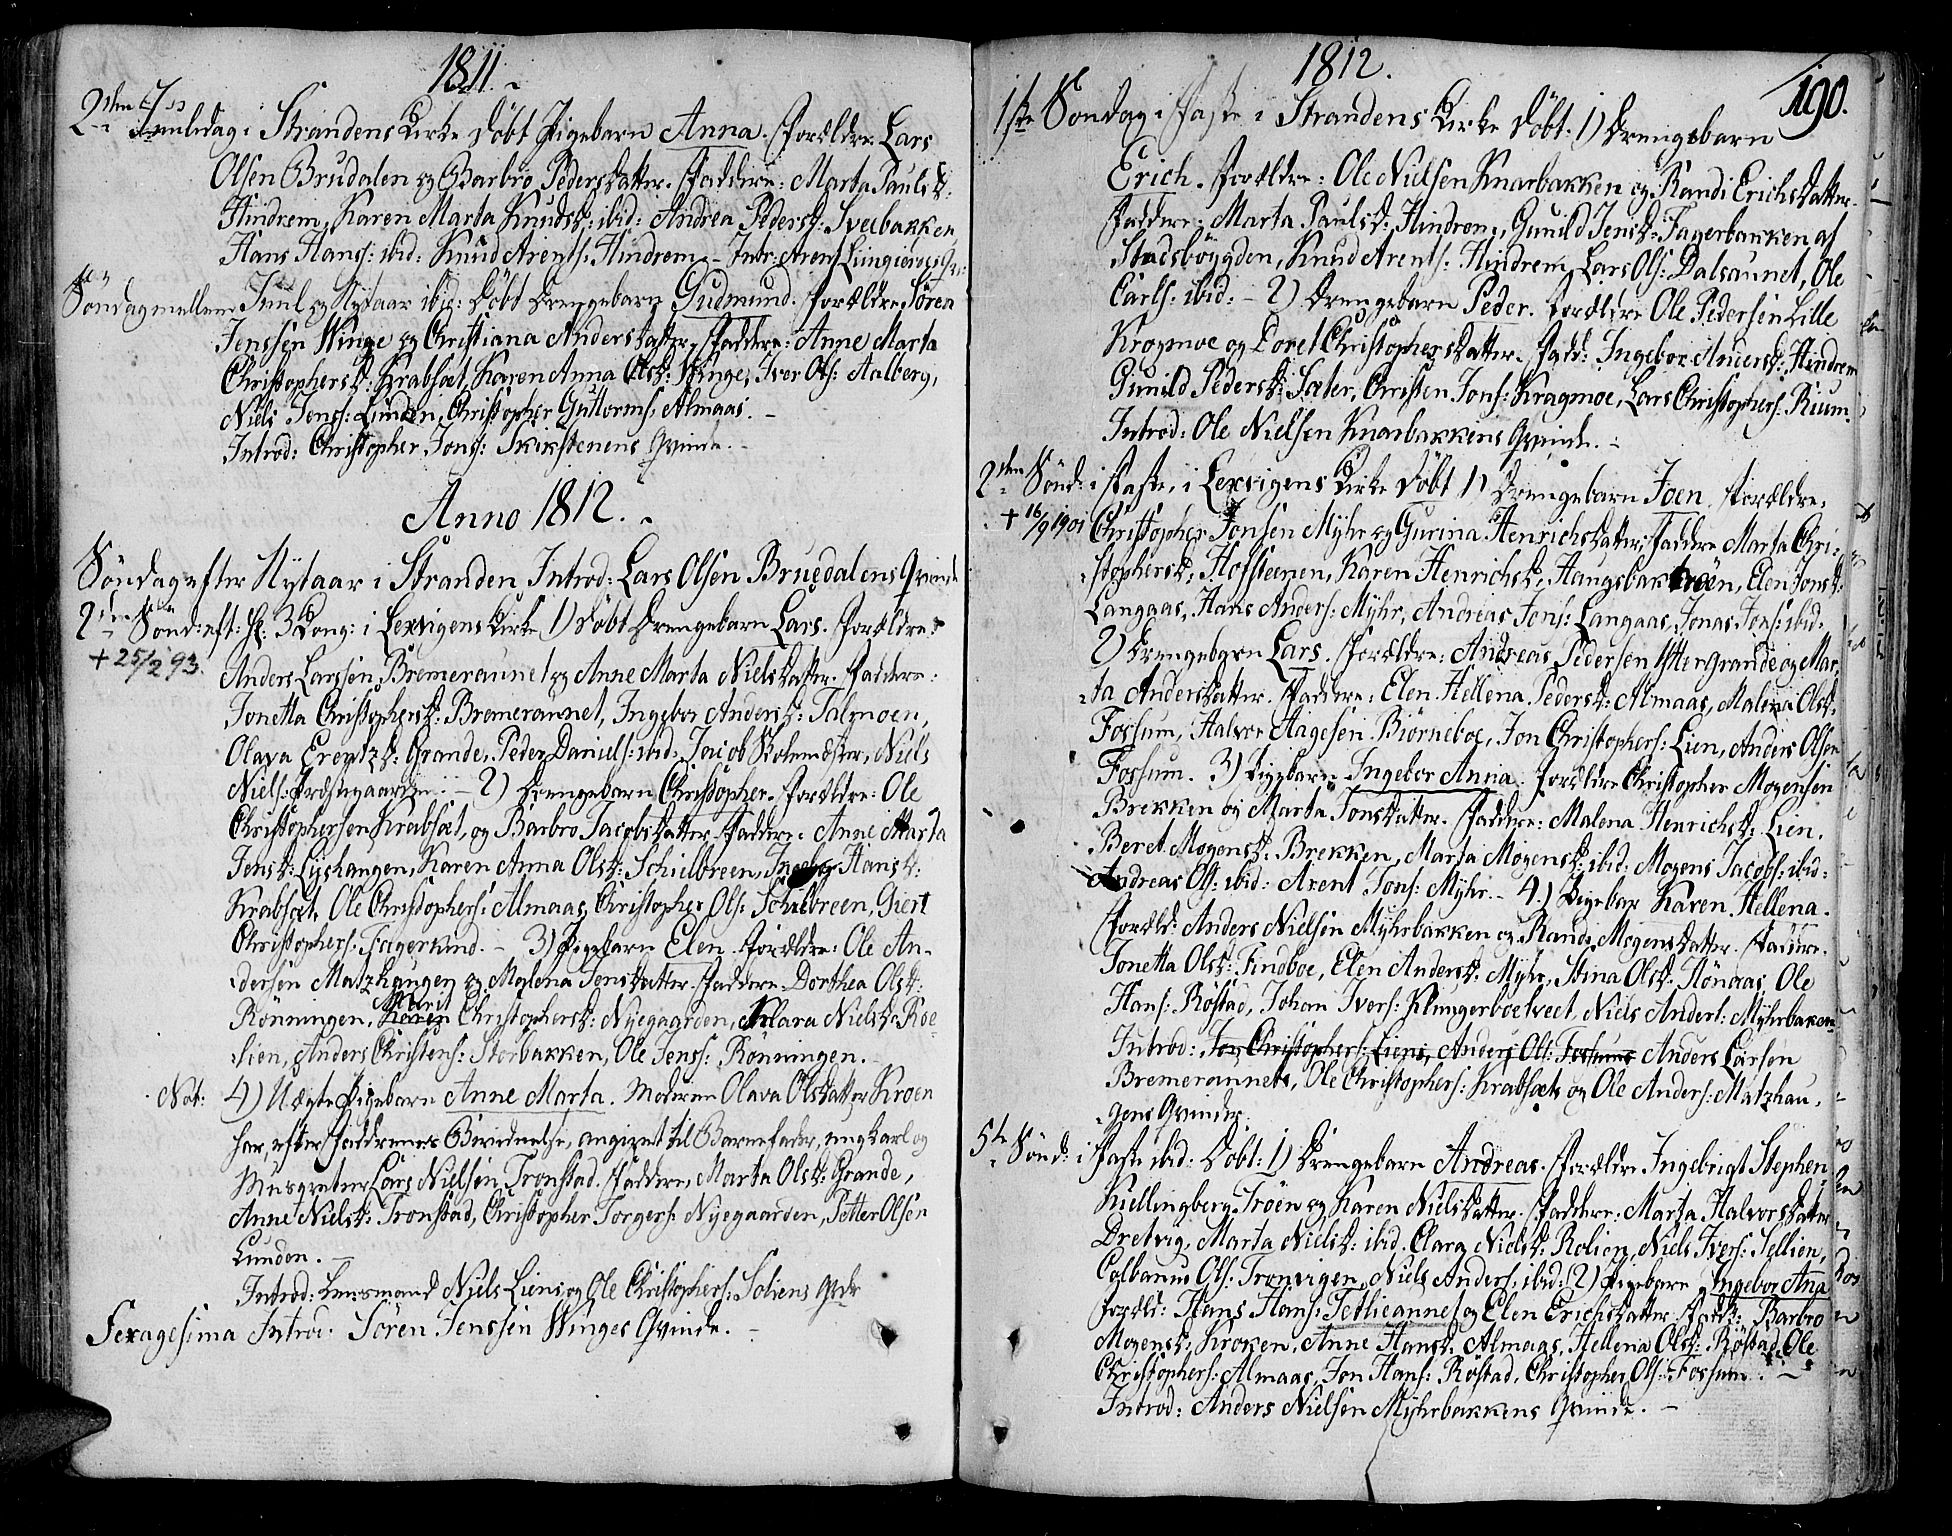 1811.
2den Juuledag i Strandens Kirke Döbt Pigebarn Anna. Forældre Lars
Olsen Brudalen og Barbro Pedersdatter. Faddere: Marta Paulsd:
Hindrem, Karen Marta Knudsd: ibid: Andrea Pedersd: Sveebakken,
Hans Hans: ibid: Knud Arents: Hindrem. - Intr:
Söndag mellem Juul og Nytaar ibid: Döbt Drengebarn Gudmund. Forældre Sören
Jenssen Winge og Christiana Andersdatter, Faddere: Anne Marta
Christophersd: Krabsæt, Karen Anna Olsd: Winge, Iver Ols: Aalberg,
Niels Jens: Linden, Christopher Guttorms: Almaas. -
Introd: Christopher Jons: Qvinde. -
Anno 1812.
Söndag efter Nytaar i Stranden Introd: Lars Olsen Bruedalens Qvinde
2den Sönd: eft: H: 3 Kong: i Lexvigens Kirke 1) Döbt Drengebarn Lars. Forældre:
+ 25/2 93.
Anders Larssen Bremeraunet og Anne Marta Nielsdatter. Faddere:
Jonetta Christophersd: Bremeraunet, Ingebor Andersd: Talmoen,
Olava Grande, Peder Daniels: ibid: Jacob Skolemester, Niels
Niels: Præstegaarden. - 2) Drengebarn Christopher. Forældre: Ole
Christophersen Krabsæt, og Barbro Jacobsdatter. Faddere: Anne Marta
Jensd: Lyshaugen, Karen Anna Olsd: Schielbreen, Ingebor Hansd:
Krabsæt, Ole Christophers: Almaas, Christopher Ols: Schielbreen, Giert
Christophers: Fagerlind. - 3) Pigebarn Elen. Forældre: Ole An-
dersen Matzhaugen og Malena Jensdatter. Faddere: Dorthea Olsd:
Rönningen, Marit Christophersd: Nyegaarden, Klara Nielsd: Roe
lien, Anders Christens: Storbakken, Ole Jens: Rönningen.
Not: 4) Uægte Pigebarn Anne Marta. Moderen Olava Olsdatter Kroen
har, efter Faddrenes Beviidnelse, angivet til Barnefader, ung karl og
Musqueteer Lars Nielsen Tronstad. Faddere, Marta Olsd: Grande,
Anne Nielsd: Tronstad, Christopher Torgers: Nyegaarden, Petter Olsen
Lunden. -
Introd: Lensmand Niels Liens og Ole Christophers: Soliens Qvdr
Sexagesima Introd: Sören Jenssen Winges Qvinde. -
1812.
190.
1ste Söndag i Faste i Strandens Kirke Döbt. 1) Drengebarn
Erich. Forældre: Ole Nielsen Knarbakken og Randi Erichsdatter.
Faddere: Marta Paulsd: Hindrem, Gunild Jensd: Fagerbakken af
Stadsböygden, Knud Arents: Hindrem, Lars Ols: Dalsaunet, Ole
Carls: ibid: - 2) Drengebarn Peder. Forældre Ole Pedersen Lille
Kragmoe og Doret Christophersdatter. Fadd: Ingebor Hindrem
Gunild Pedersd: Sæter, Christen Jons: Kragmoe, Lars Christophers: Rium.
Introd: Ole Nielsen Knarbakkens Qvinde. -
2den Sönd: i Faste, i Lexvigens Kirke Döbt 1) Drengebarn Joen. Forældre:
+ 16/9 1901
Christopher Jonsen Myhr og Gurina Henrichsdatter, Faddere Marta Chri-
stophersd: Hofsteenen, Karen Henrichsd: Haugsbakken, Elen Jonsd:
Langaas, Hans Anders: Myhr, Andreas Jons: Langaas, Jonas Jons: ibid:
2) Drengebarn Lars. Forældre: Andreas Pedersen Yttergrande og Mar-
ta Andersdatter. Faddere: Elen Hellena Pedersd: Almaas, Malena Olsd:
Fossum, Halvor Aagesen Biörneboe, Jon Christophers: Lien, Anders Olsen
Fossum. 3) Pigebarn Ingebor Anna. Forældre Christopher Mogensen
Brekken og Marta Jonsdatter. Faddere: Malena Henrichsd: Lien.
Beret Mogensd: Brekken, Marta Mogensd: ibid: Mogens Jacobs: ibid:
Andreas Ols: ibid: Arent Jons: Myhr. - 4.) Pigebar Karen Hellena.
Foræld: Anders Nielsen Myhrbakken og Randi Mogensdatter. Faddere.
Jonetta Olsd: Findboe, Elen Andersd: Myhr, Stina Olsd: Rönaas, Ole
Hans: Röstad, Johan Ivers: Klungerboetveet, Niels Anders: Myhrbakken
Introd: Jon Christophers: Liens, Anders Ols: Fossums Anders Larsen
Bremeraunets, Ole Christophers: Krabsæts og Ole Anders: Matzhau-
gens Qvinder.
5te Sönd: i Faste ibid: Döbt: 1) Drengebarn Andreas. Forældre Ingebrigt Stephen:
Kiellingberg Tröen og Karen Nielsdatter. Faddere: Marta Halvorsdatter
Dretvig, Marta Nielsd: ibid. Clara Nielsd: Rolien, Niels Ivers: Sellien,
Colbanus Ols: Tronvigen, Niels Anders: ibid: 2) Pigebarn Ingebor Ana
Foræld: Hans Hans: Tetlieaunet og Elen Erichsdatter. Fadd: Barbro
Mogensd: Kroken, Anne Hansd: Almaas, Hellena Olsd: Röstad, Ole
Christophers: Almaas, Jon Hans: Röstad, Christopher Ols: Fossum. -
Introd: Anders Nielsen Myhrbakkens Qvinde. -